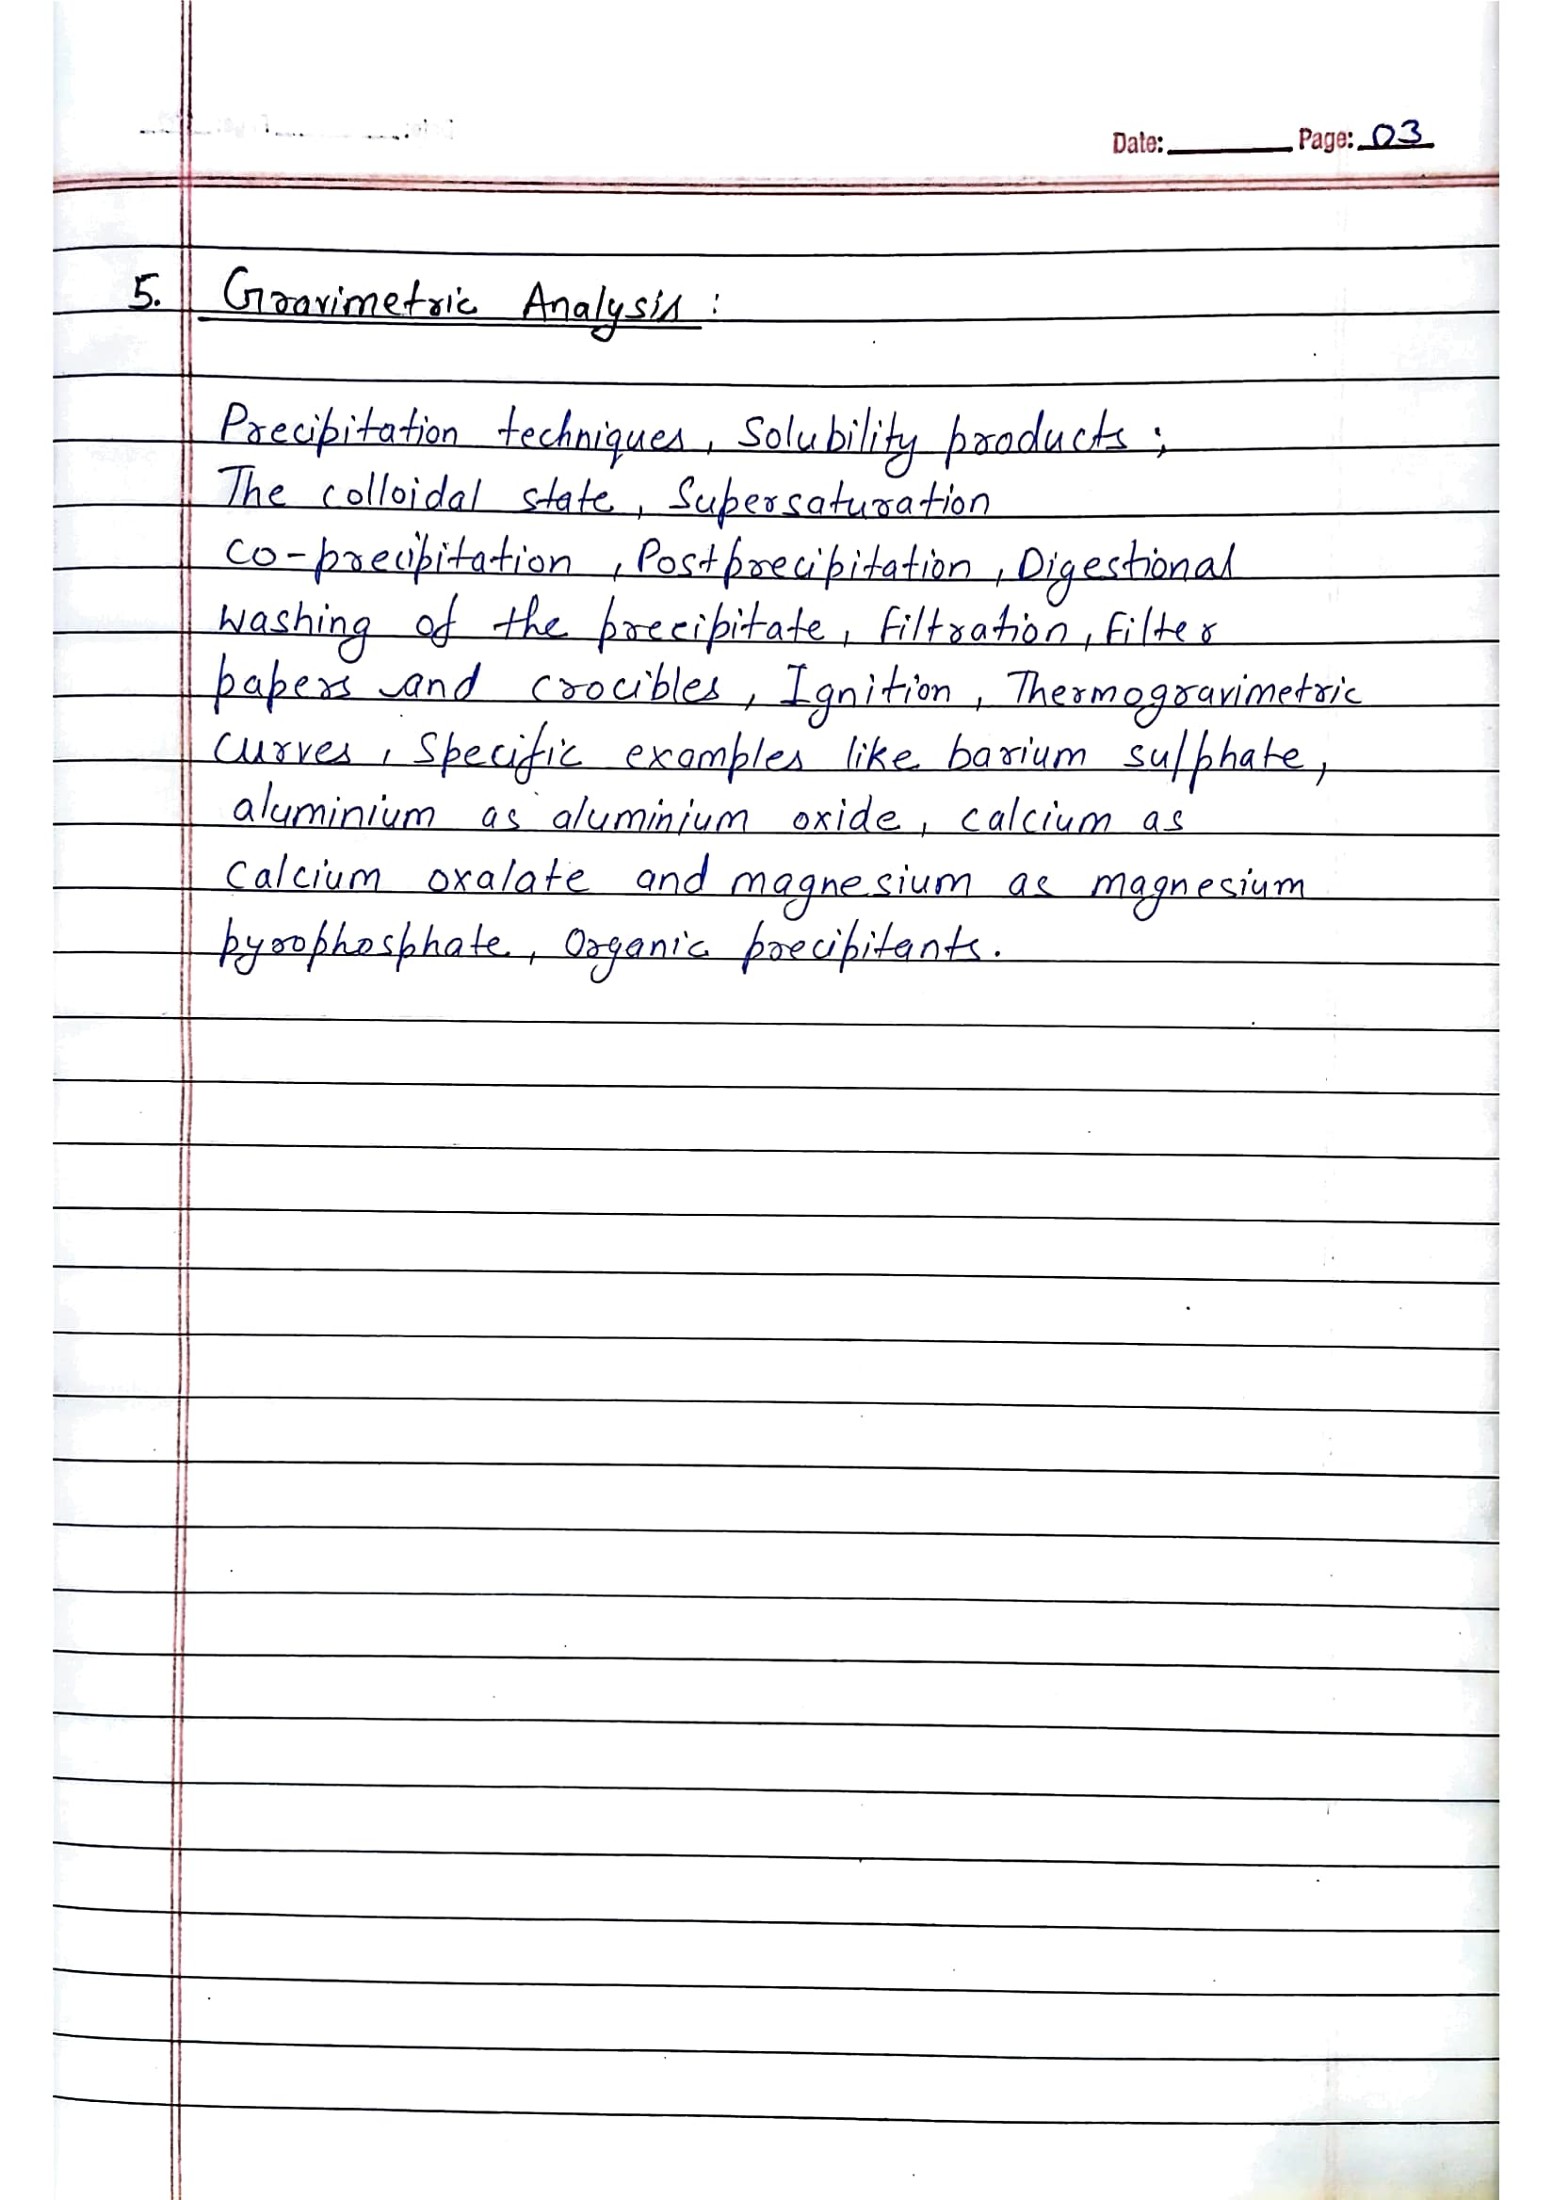 Date: Page: 03
5. Gravimetric Analysis :
Precipitation techniques, Solubility products ;
The colloidal state, Supersaturation
co-precipitation, Postprecipitation, Digestional
washing of the precipitate, filtration, filter
papers and crocibles, Ignition, Thermogravimetric
curves, Specific examples like barium sulphate,
aluminium as aluminium oxide, calcium as
calcium oxalate and magnesium as magnesium
pyrophosphate, Organic precipitants.